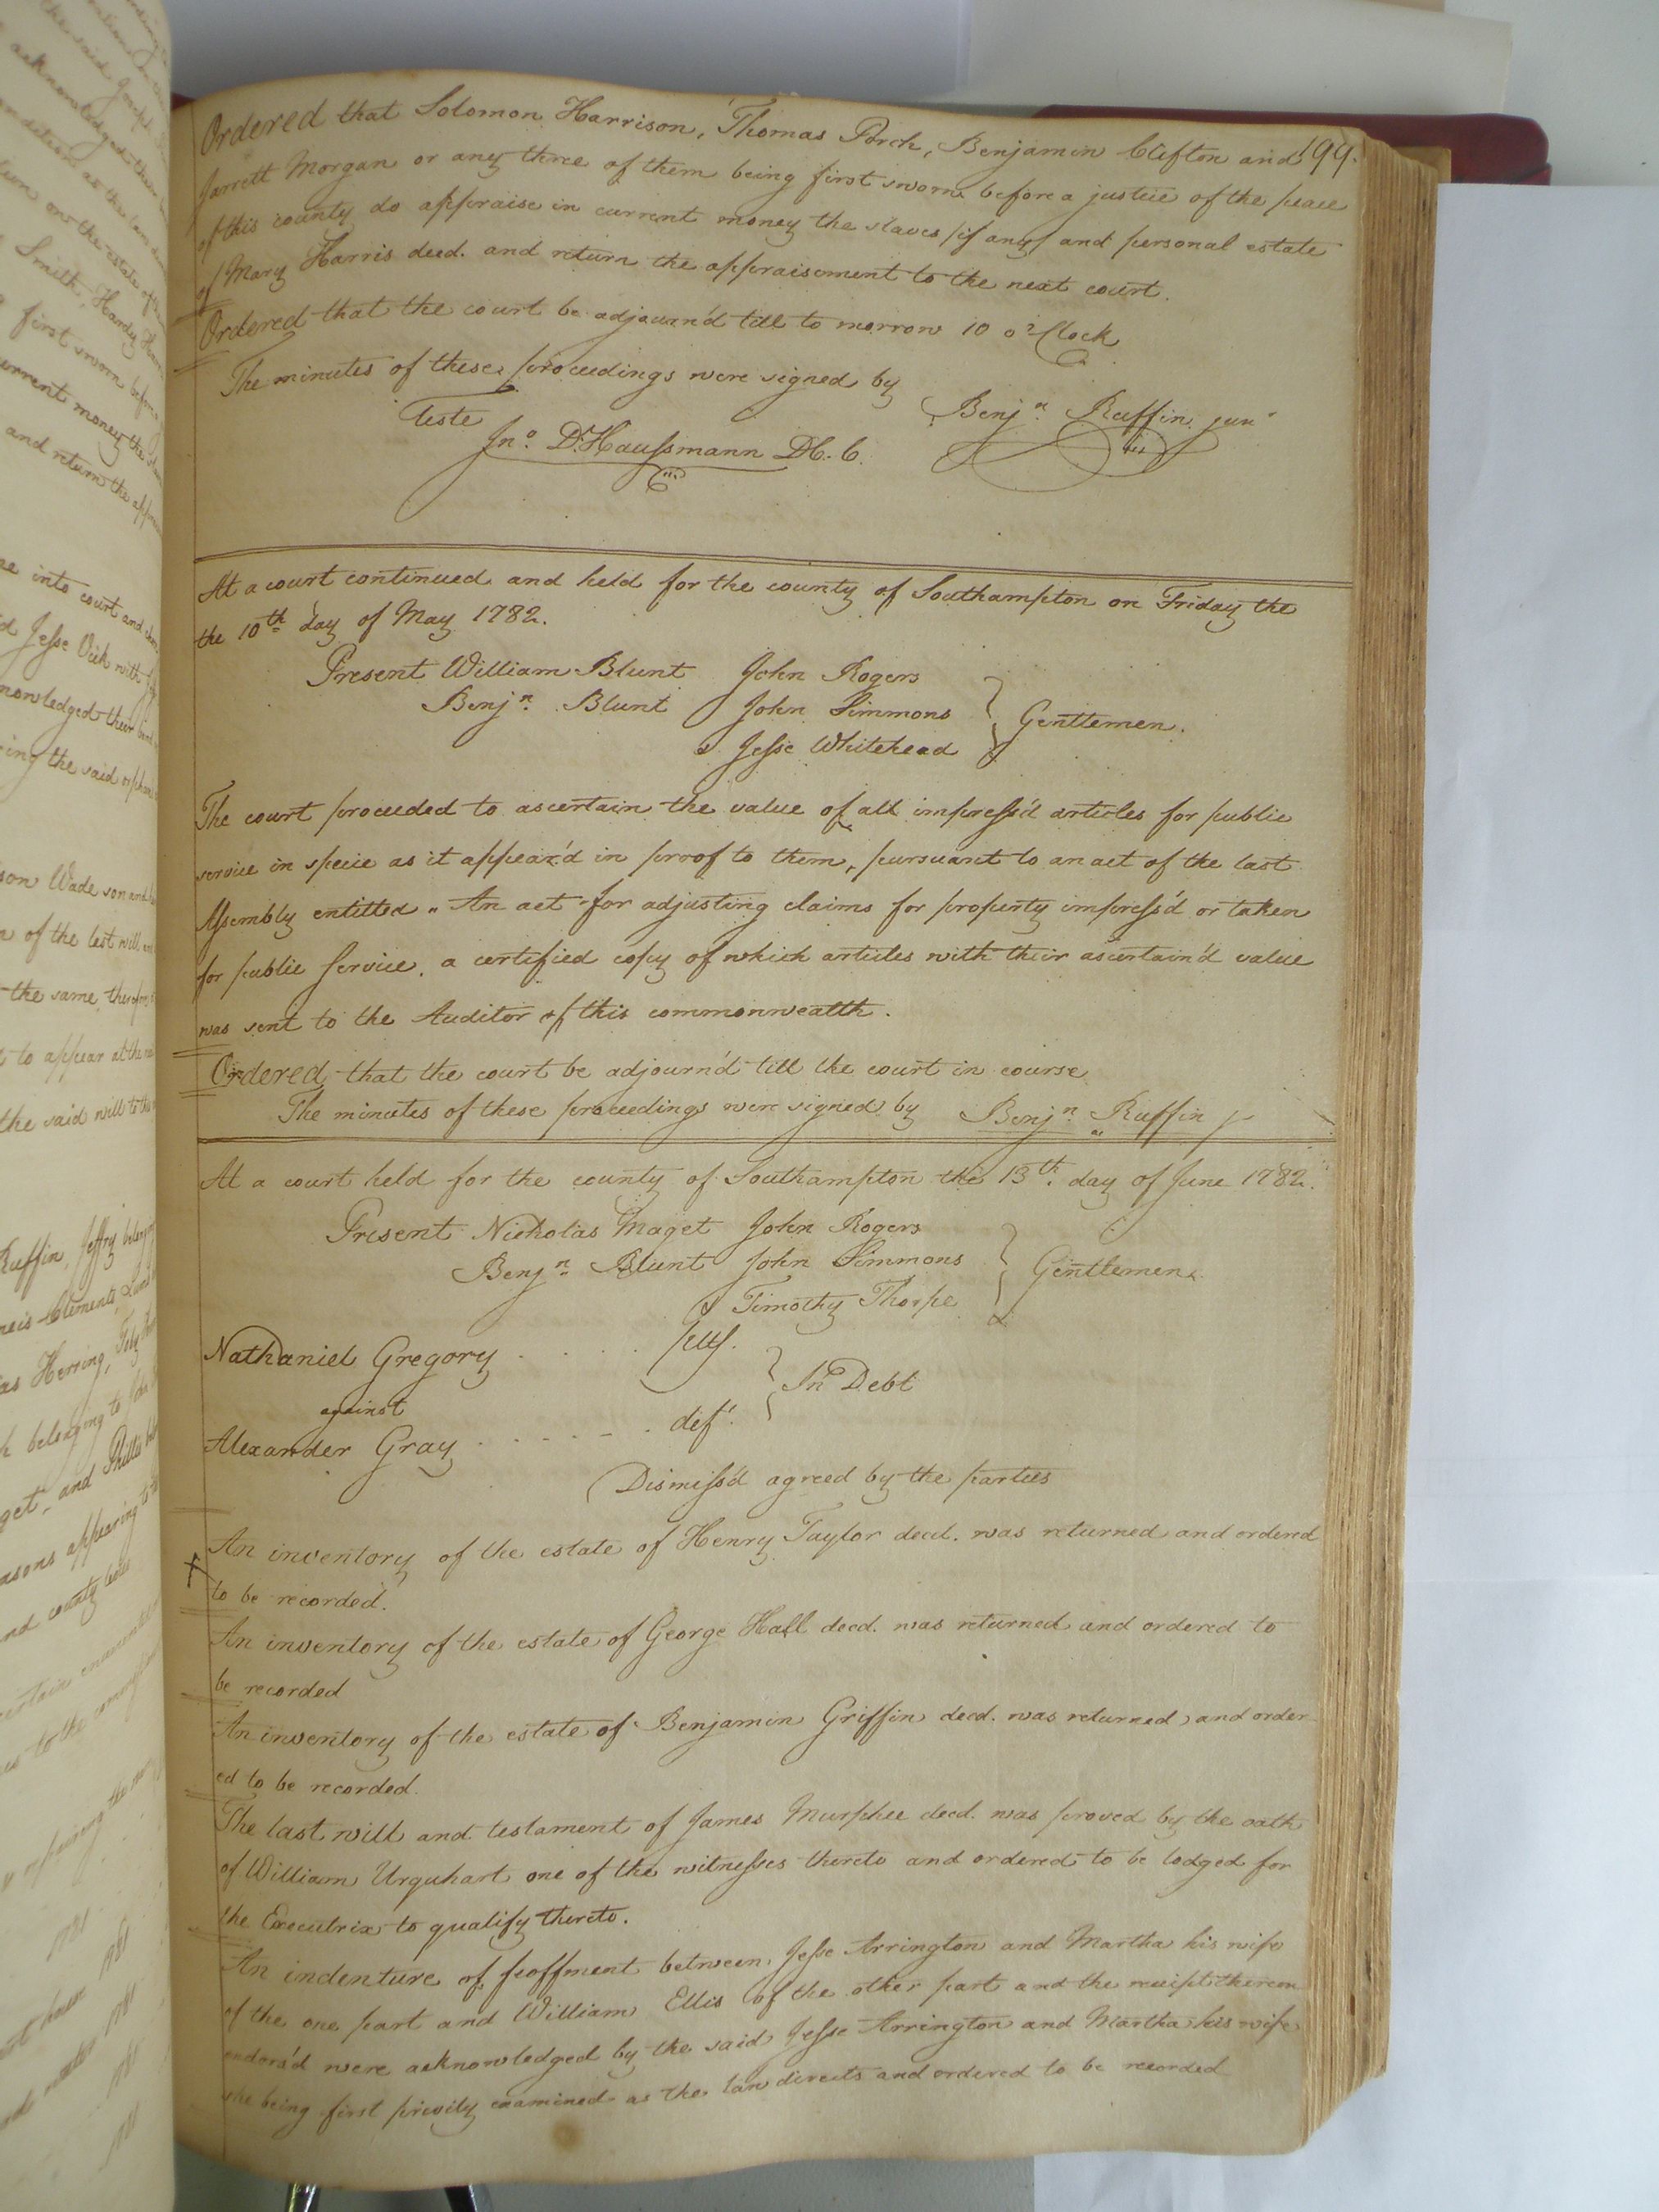 199.
Ordered that Solomon Harrison, Thomas Porch, Benjamin Clifton and
Jarrett Morgan or any three of them being first sworn before a justice of the peace
of this county do appraise in current money the slaves (if any) and personal estate
of Mary Harris decd. and return the appraisement to the next court.
Ordered that the court be adjourn'd till to morrow 10 o'Clock
The minutes of these proceedings were signed by
Benjn. Ruffin junr
Teste
Jno. D. Haussmann D.C.C.
At a court continued and held for the county of Southampton on Friday the
the 10th day of May 1782.
Present William Blunt John Rogers
Benjn. Blunt John Simmons } Gentlemen.
& Jesse Whitehead
The court proceeded to ascertain the value of all impress'd articles for public
service in specie as it appear'd in proof to them, pursuant to an act of the last
Assembly entitled " An act for adjusting claims for property impress'd or taken
for public Service. a certified copy of which articles with their ascertain'd value
was sent to the Auditor of this commonwealth.
Ordered that the court be adjourn'd till the court in course
The minutes of these proceedings were signed by Benjn. Ruffin jr
At a court held for the county of Southampton the 13th. day of June 1782.
Present Nicholas Maget John Rogers
Benjn. Blunt John Simmons } Gentlemen.
& Timothy Thorpe
Nathaniel Gregory . . . . pltf.
against } In Debt
Alexander Gray . . . . . . deft.
Dismiss'd agreed by the parties
An inventory of the estate of Henry Taylor decd. was returned and ordered
to be recorded.
An inventory of the estate of George Hall decd. was returned and ordered to
be recorded
An inventory of the estate of Benjamin Griffin decd. was returned and order
ed to be recorded.
The last will and testament of James Murphee decd. was proved by the oath
of William Urquhart one of the witnesses thereto and ordered to be lodged for
the Executrix to qualify thereto.
An indenture of feoffment between Jesse Arrington and Martha his wife
of the one part and William Ellis of the other part and the receipt thereon
endors'd were acknowledged by the said Jesse Arrington and Martha his wife
she being first privily examined as the law directs and ordered to be recorded